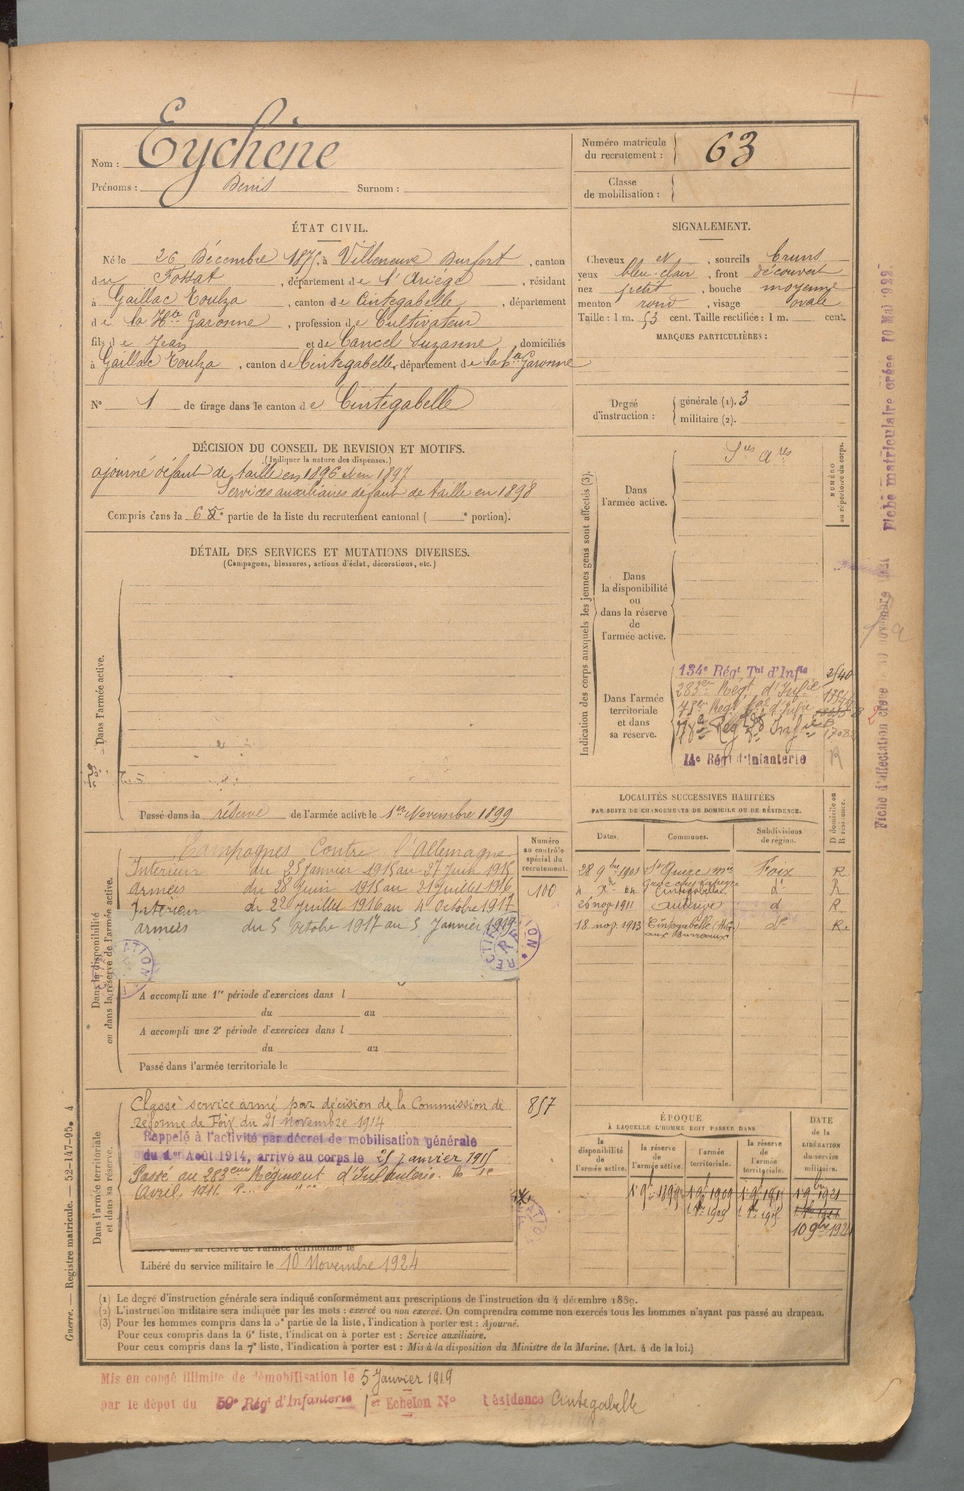 Eychène
Nom :
Prénoms : Denis Surnom :
Numéro matricule
du recrutement : 63
Classe
de mobilisation :
ÉTAT CIVIL.
Né le 26 Décembre 1875, à Villeneuve Durfort, canton
du Fossat, département de l'Ariège, résidant
à Gaillac Toulza, canton de Cintegabelle, département
de la Hte Garonne, profession de Cultivateur
fils de Jean et de Cancel Suzanne, domiciliés
à Gaillac Toulza, canton de Cintegabelle, département de la Hte Garonne
N° 1 de tirage dans le canton de Cintegabelle
SIGNALEMENT.
Cheveux N, sourcils bruns
yeux bleu clair, front découvert
nez petit, bouche moyenne
menton rond, visage ovale
Taille : 1 m. 53 cent. Taille rectifiée : 1 m. cent.
MARQUES PARTICULIÈRES :
Degré
d'instruction :
générale (1). 3
militaire (2).
DÉCISION DU CONSEIL DE REVISION ET MOTIFS.
(Indiquer la nature des dispenses.)
ajourné défaut de taille en 1896 et en 1897
Services auxiliaires défaut de taille en 1898
Compris dans la 6e partie de la liste du recrutement cantonal ( e portion).
DÉTAIL DES SERVICES ET MUTATIONS DIVERSES.
(Campagnes, blessures, actions d'éclat, décorations, etc.)
Dans l'armée active.
Passé dans la réserve de l'armée active le 1er Novembre 1899
Indication des corps auxquels les jeunes gens sont affectés (3).
NUMÉRO
au répertoire du corps.
Dans
l'armée active.
Dans
la disponibilité
ou
dans la réserve
de
l'armée active.
Dans l'armée
territoriale
et dans
sa réserve.
134e Régt Tal d'Infie
283e Régt d'Infie
14e Régt d'Infanterie
Dans la disponibilité
ou dans la réserve de l'armée active.
Campagnes Contre l'Allemagne
Intérieur du 25 janvier 1915 au 27 Juin 1915
armées du 28 Juin 1915 au 21 Juillet 1916
Intérieur du 22 Juillet 1916 au 4 Octobre 1917
armées du 5 Octobre 1917 au 5 Janvier 1919
Numéro
au contrôle
spécial du
recrutement.
100
A accompli une 1re période d'exercices dans l
du au
A accompli une 2e période d'exercices dans l
du au
Passé dans l'armée territoriale le
LOCALITÉS SUCCESSIVES HABITÉES
PAR SUITE DE CHANGEMENTS DE DOMICILE OU DE RÉSIDENCE.
Dates. Communes. Subdivisions
de région.
D domicile ou
R résidence.
28 9bre 1901 Foix R
Cintegabelle d° R
25 nov 1911 Auterive d° R
18 nov. 1913 Cintegabelle d° R.
Dans l'armée territoriale
et dans sa réserve.
Classé service armé par décision de la Commission de
réforme de Foix du 21 novembre 1914
Rappelé à l'activité par décret de mobilisation générale
du 1er Août 1914, arrivé au corps le 25 janvier 1915
Passé au 283eme Régiment d'Infanterie. le 1er
Avril,
857
Libéré du service militaire le 10 Novembre 1924
ÉPOQUE
À LAQUELLE L'HOMME DOIT PASSER DANS
la
disponibilité
de
l'armée active.
la réserve
de
l'armée active.
l'armée
territoriale.
la réserve
de
l'armée
territoriale.
DATE
de la
LIBÉRATION
du service
militaire.
1er 9bre 1899 1er 9bre 1909 1er 9bre 1915 1er 9bre 1921
10 9bre 1924
(1) Le degré d'instruction générale sera indiqué conformément aux prescriptions de l'instruction du 4 décembre 1889.
(2) L'instruction militaire sera indiquée par les mots : exercé ou non exercé. On comprendra comme non exercés tous les hommes n'ayant pas passé au drapeau.
(3) Pour les hommes compris dans la 5e partie de la liste, l'indication à porter est : Ajourné.
Pour ceux compris dans la 6e liste, l'indication à porter est : Service auxiliaire.
Pour ceux compris dans la 7e liste, l'indication à porter est : Mis à la disposition du Ministre de la Marine. (Art. 4 de la loi.)
Mis en congé illimité de démobilisation le 5 Janvier 1919
par le dépôt du 59e Régt d'Infanterie 1er Echelon N° Résidence Cintegabelle
Guerre. — Registre matricule. — 52-147-95. 4
Fiche matriculaire créée 10 Mai 1922.
Fiche d'affectation créée novembre 1921